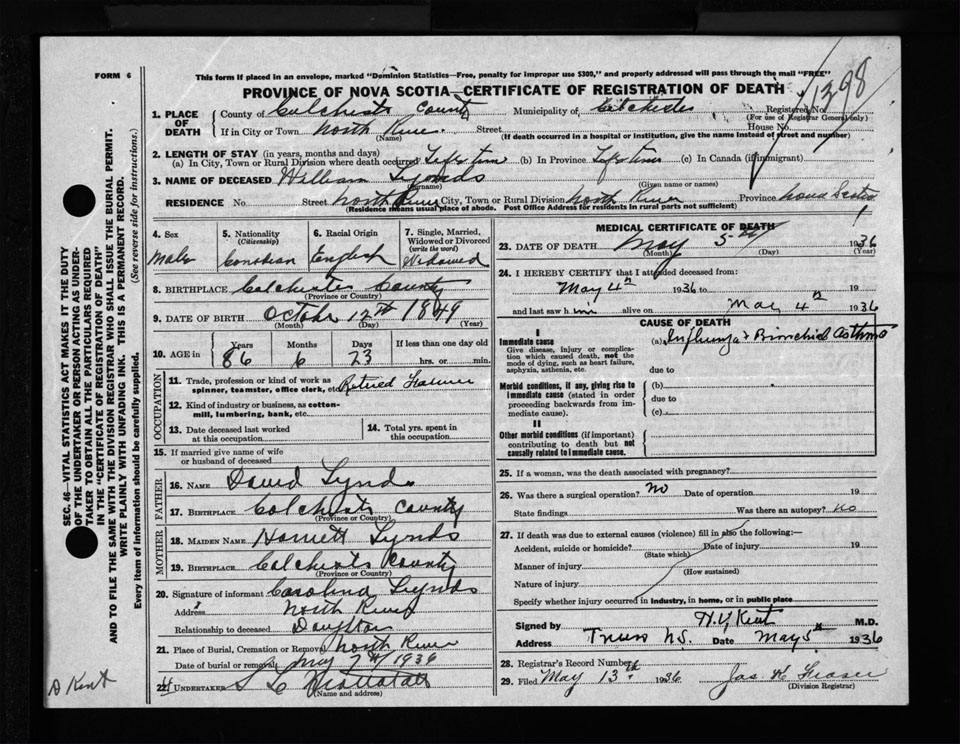 FORM 6
This form if placed in an envelope, marked "Dominion Statistics—Free, penalty for improper use $300," and properly addressed will pass through the mail "FREE"
PROVINCE OF NOVA SCOTIA—CERTIFICATE OF REGISTRATION OF DEATH
1398
1. PLACE OF DEATH
County of Colchester County Municipality of Colchester Registered No.
(For use of Registrar General only)
If in City or Town North River. Street House No.
(Name) (If death occurred in a hospital or institution, give the name instead of street and number)
2. LENGTH OF STAY (in years, months and days)
(a) In City, Town or Rural Division where death occurred Life time (b) In Province Life time (c) In Canada (if immigrant)
3. NAME OF DECEASED William Lynds
(Surname) (Given name or names)
RESIDENCE No. Street North River City, Town or Rural Division North River Province Nova Scotia
(Residence means usual place of abode. Post Office Address for residents in rural parts not sufficient)
4. Sex
Male
5. Nationality
(Citizenship)
Canadian
6. Racial Origin
English
7. Single, Married, Widowed or Divorced
(write the word)
Widowed
8. BIRTHPLACE Colchester County
(Province or Country)
9. DATE OF BIRTH October 12th 1849
(Month) (Day) (Year)
10. AGE in Years Months Days If less than one day old
86 6 23 hrs. or min.
OCCUPATION
11. Trade, profession or kind of work as spinner, teamster, office clerk, etc. Retired Farmer
12. Kind of industry or business, as cotton-mill, lumbering, bank, etc.
13. Date deceased last worked at this occupation
14. Total yrs. spent in this occupation
15. If married give name of wife or husband of deceased
FATHER
16. NAME David Lynds
17. BIRTHPLACE Colchester County
(Province or Country)
MOTHER
18. MAIDEN NAME Harriett Lynds
19. BIRTHPLACE Colchester County
(Province or Country)
20. Signature of informant Carolina Lynds
Address North River
Relationship to deceased Daughter
21. Place of Burial, Cremation or Removal North River
Date of burial or removal May 7th 1936
22. UNDERTAKER
(Name and address)
MEDICAL CERTIFICATE OF DEATH
23. DATE OF DEATH May 5th 1936
(Month) (Day) (Year)
24. I HEREBY CERTIFY that I attended deceased from:
May 4th 1936 to 19
and last saw him alive on May 4th 1936
CAUSE OF DEATH
I
Immediate cause
Give disease, injury or complication which caused death, not the mode of dying, such as heart failure, asphyxia, asthenia, etc.
(a) Influenza & Bronchial Asthma
due to
Morbid conditions, if any, giving rise to immediate cause (stated in order proceeding backwards from immediate cause).
(b)
due to
(c)
II
Other morbid conditions (if important) contributing to death but not causally related to immediate cause.
25. If a woman, was the death associated with pregnancy?
26. Was there a surgical operation? No Date of operation 19
State findings Was there an autopsy? No
27. If death was due to external causes (violence) fill in also the following:—
Accident, suicide or homicide? Date of injury 19
(State which)
Manner of injury
(How sustained)
Nature of injury
Specify whether injury occurred in industry, in home, or in public place
Signed by H.V. Kent M.D.
Address Truro N.S. Date May 5th 1936
28. Registrar's Record Number
29. Filed May 13th 1936 Jas H Fraser
(Division Registrar)
SEC. 46—VITAL STATISTICS ACT MAKES IT THE DUTY
OF THE UNDERTAKER OR PERSON ACTING AS UNDER-
TAKER TO OBTAIN ALL THE PARTICULARS REQUIRED
IN THE "CERTIFICATE OF REGISTRATION OF DEATH"
AND TO FILE THE SAME WITH THE DIVISION REGISTRAR WHO SHALL ISSUE THE BURIAL PERMIT.
WRITE PLAINLY WITH UNFADING INK. THIS IS A PERMANENT RECORD.
Every item of information should be carefully supplied. (See reverse side for instructions.)
D Kent